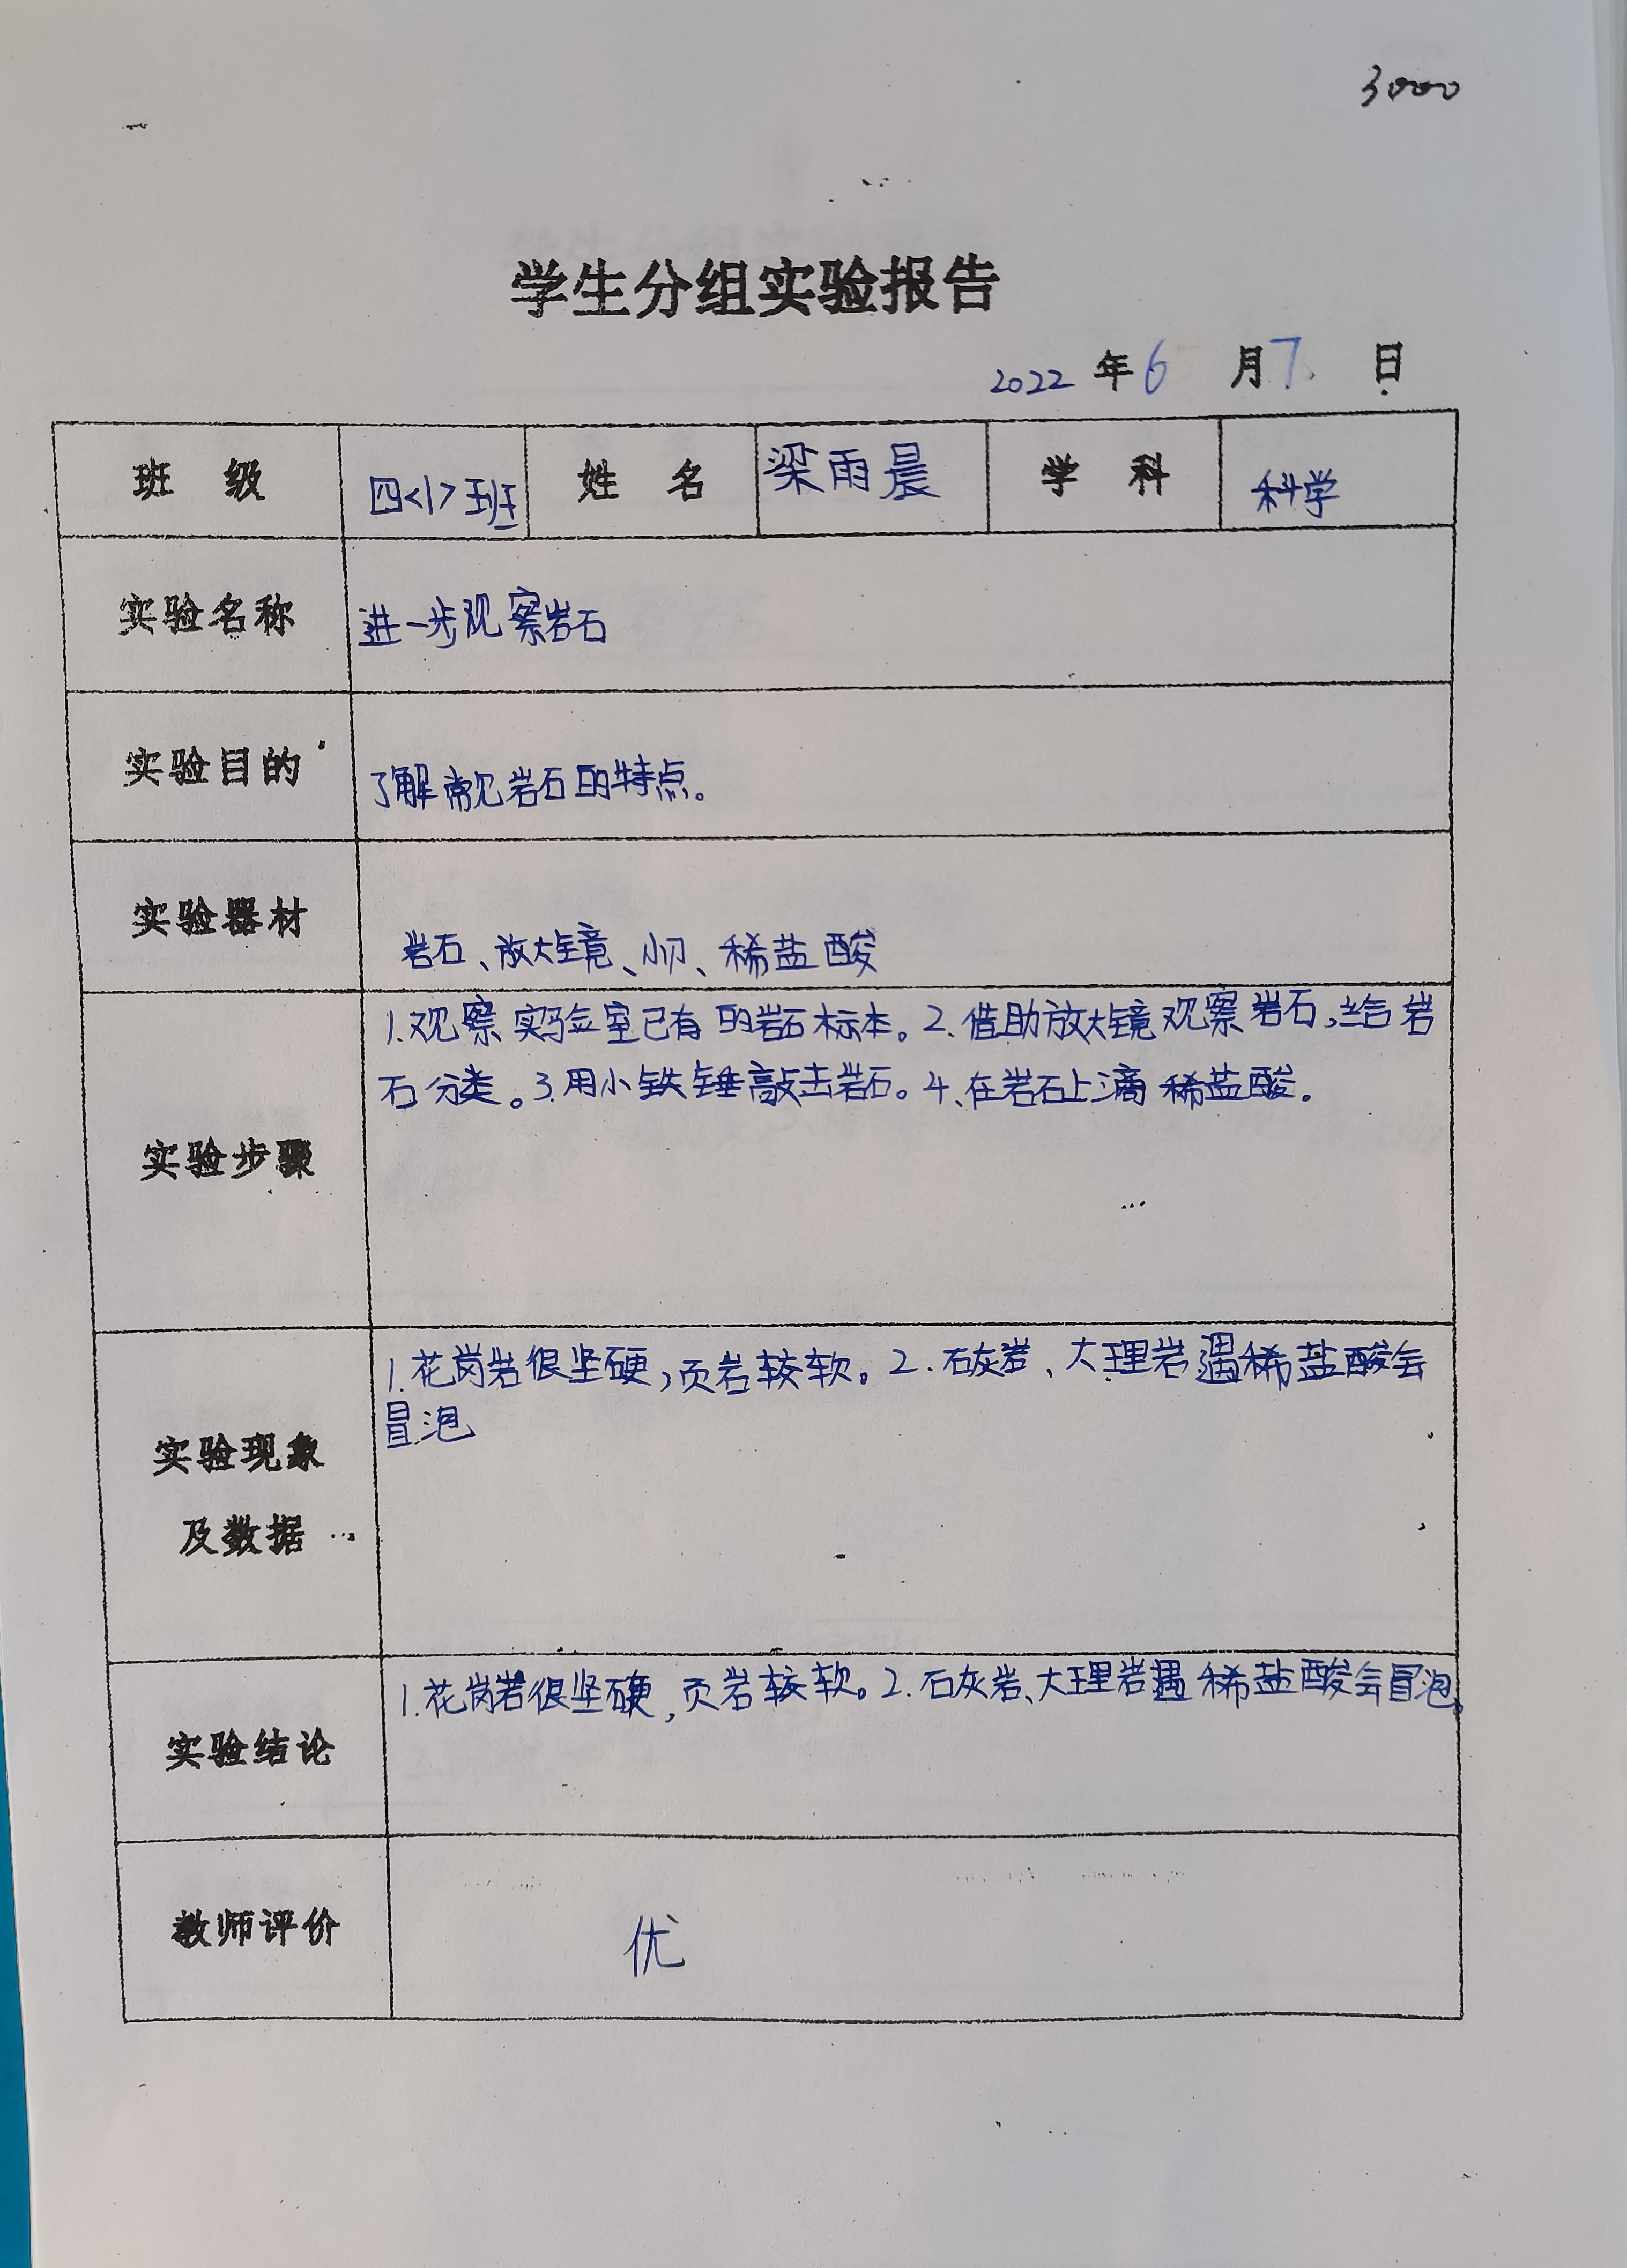 3000
学生分组实验报告
2022 年 6 月 7 日
班 级 四<1>班 姓 名 梁雨晨 学 科 科学
实验名称 进一步观察岩石
实验目的 了解常见岩石的特点。
实验器材 岩石、放大镜、小刀、稀盐酸
1.观察实验室已有的岩石标本。2.借助放大镜观察岩石,给岩
石分类。3.用小铁锤敲击岩石。4、在岩石上滴稀盐酸。
实验步骤
1.花岗岩很坚硬,页岩较软。2.石灰岩、大理岩遇稀盐酸会
冒泡
实验现象
及数据
1.花岗岩很坚硬,页岩较软。2.石灰岩、大理岩遇稀盐酸会冒泡。
实验结论
教师评价 优